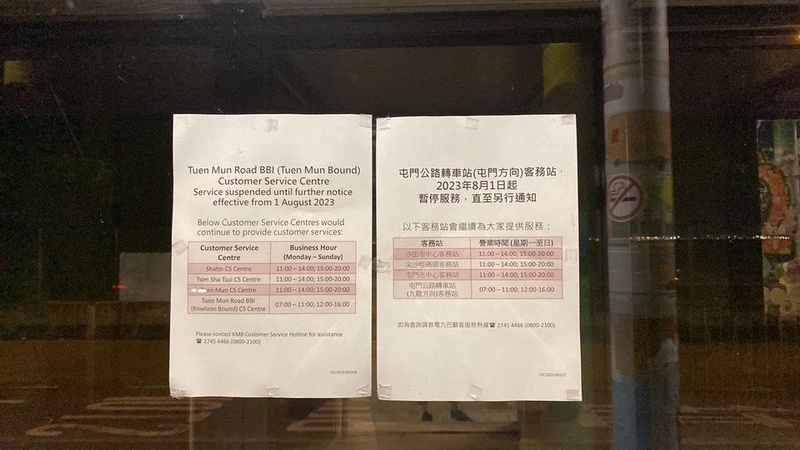 Tuen Mun Road BBI (Tuen Mun Bound)
Customer Service Centre
Service suspended until further notice
effective from 1 August 2023
Below Customer Service Centres would
continue to provide customer services:
Customer Service Centre Business Hour (Monday – Sunday)
Shatin CS Centre 11:00 – 14:00; 15:00-20:00
Tsim Sha Tsui CS Centre 11:00 – 14:00; 15:00-20:00
Mun CS Centre 11:00 – 14:00; 15:00-20:00
Tuen Mun Road BBI (Kowloon Bound) CS Centre 07:00 – 11:00; 12:00-16:00
Please contact KMB Customer Service Hotline for assistance
☎ 2745 4466 (0800-2100)
屯門公路轉車站(屯門方向)客務站，
2023年8月1日起
暫停服務，直至另行通知
以下客務站會繼續為大家提供服務：
客務站 營業時間 (星期一至日)
沙田市中心客務站 11:00 – 14:00; 15:00-20:00
尖沙咀碼頭客務站 11:00 – 14:00; 15:00-20:00
屯門市中心客務站 11:00 – 14:00; 15:00-20:00
屯門公路轉車站 (九龍方向)客務站 07:00 – 11:00; 12:00-16:00
如有查詢請致電九巴顧客服務熱線☎ 2745 4466 (0800-2100)